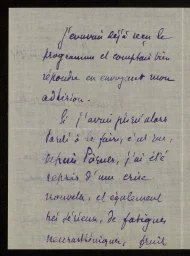 J'en avais déjà reçu le
programme et comptais bien
répondre en envoyant mon
adhésion.
Si j'avais jusqu'alors
tardé à le faire, c'est que,
depuis Pâques, j'ai été
repris d'une crise
nouvelle, et également
très sérieuse, de fatigues
neurasthéniques, fruit